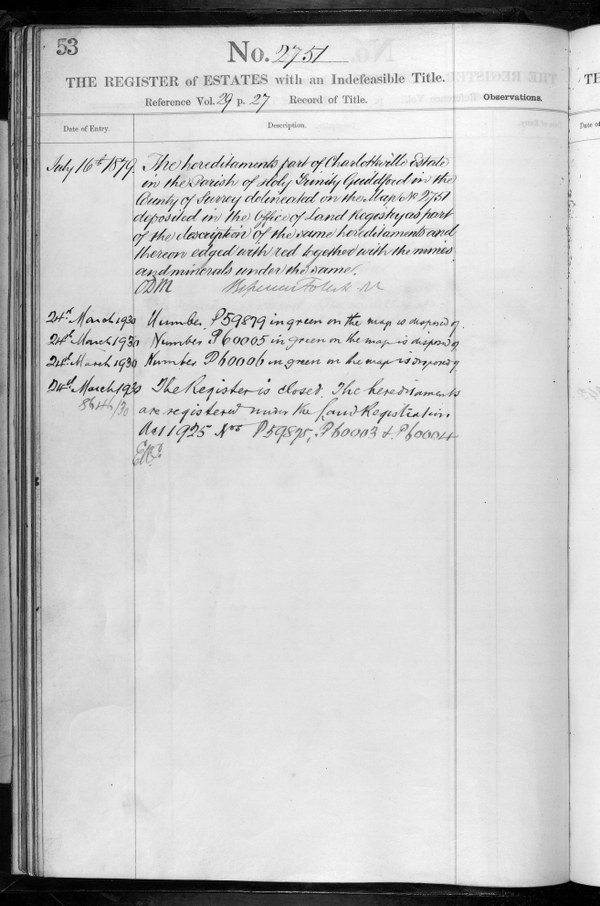 53
No. 2751
THE REGISTER of ESTATES with an Indefeasible Title.
Reference Vol. 29 p. 27 Record of Title.
Observations.
Date of Entry.
Description.
July 16th 1879. The hereditaments part of Charlottville Estate
in the Parish of Holy Trinity Guildford in the
County of Surrey delineated on the Map No 2751
deposited in the Office of Land Registry as part
of the description of the same hereditaments and
thereon edged with red together with the mines
and minerals under the same.
ODM
24th March 1930 Number P59879 in green on the map is disposed of
24th March 1930 Number P60005 in green on the map is disposed of
24th March 1930 Number P60006 in green on the map is disposed of
24th March 1930 The Register is closed. The hereditaments
8646/30 are registered under the Land Registration
Act 1925 Nos P59878, P60003 & P60004
TH
Date of